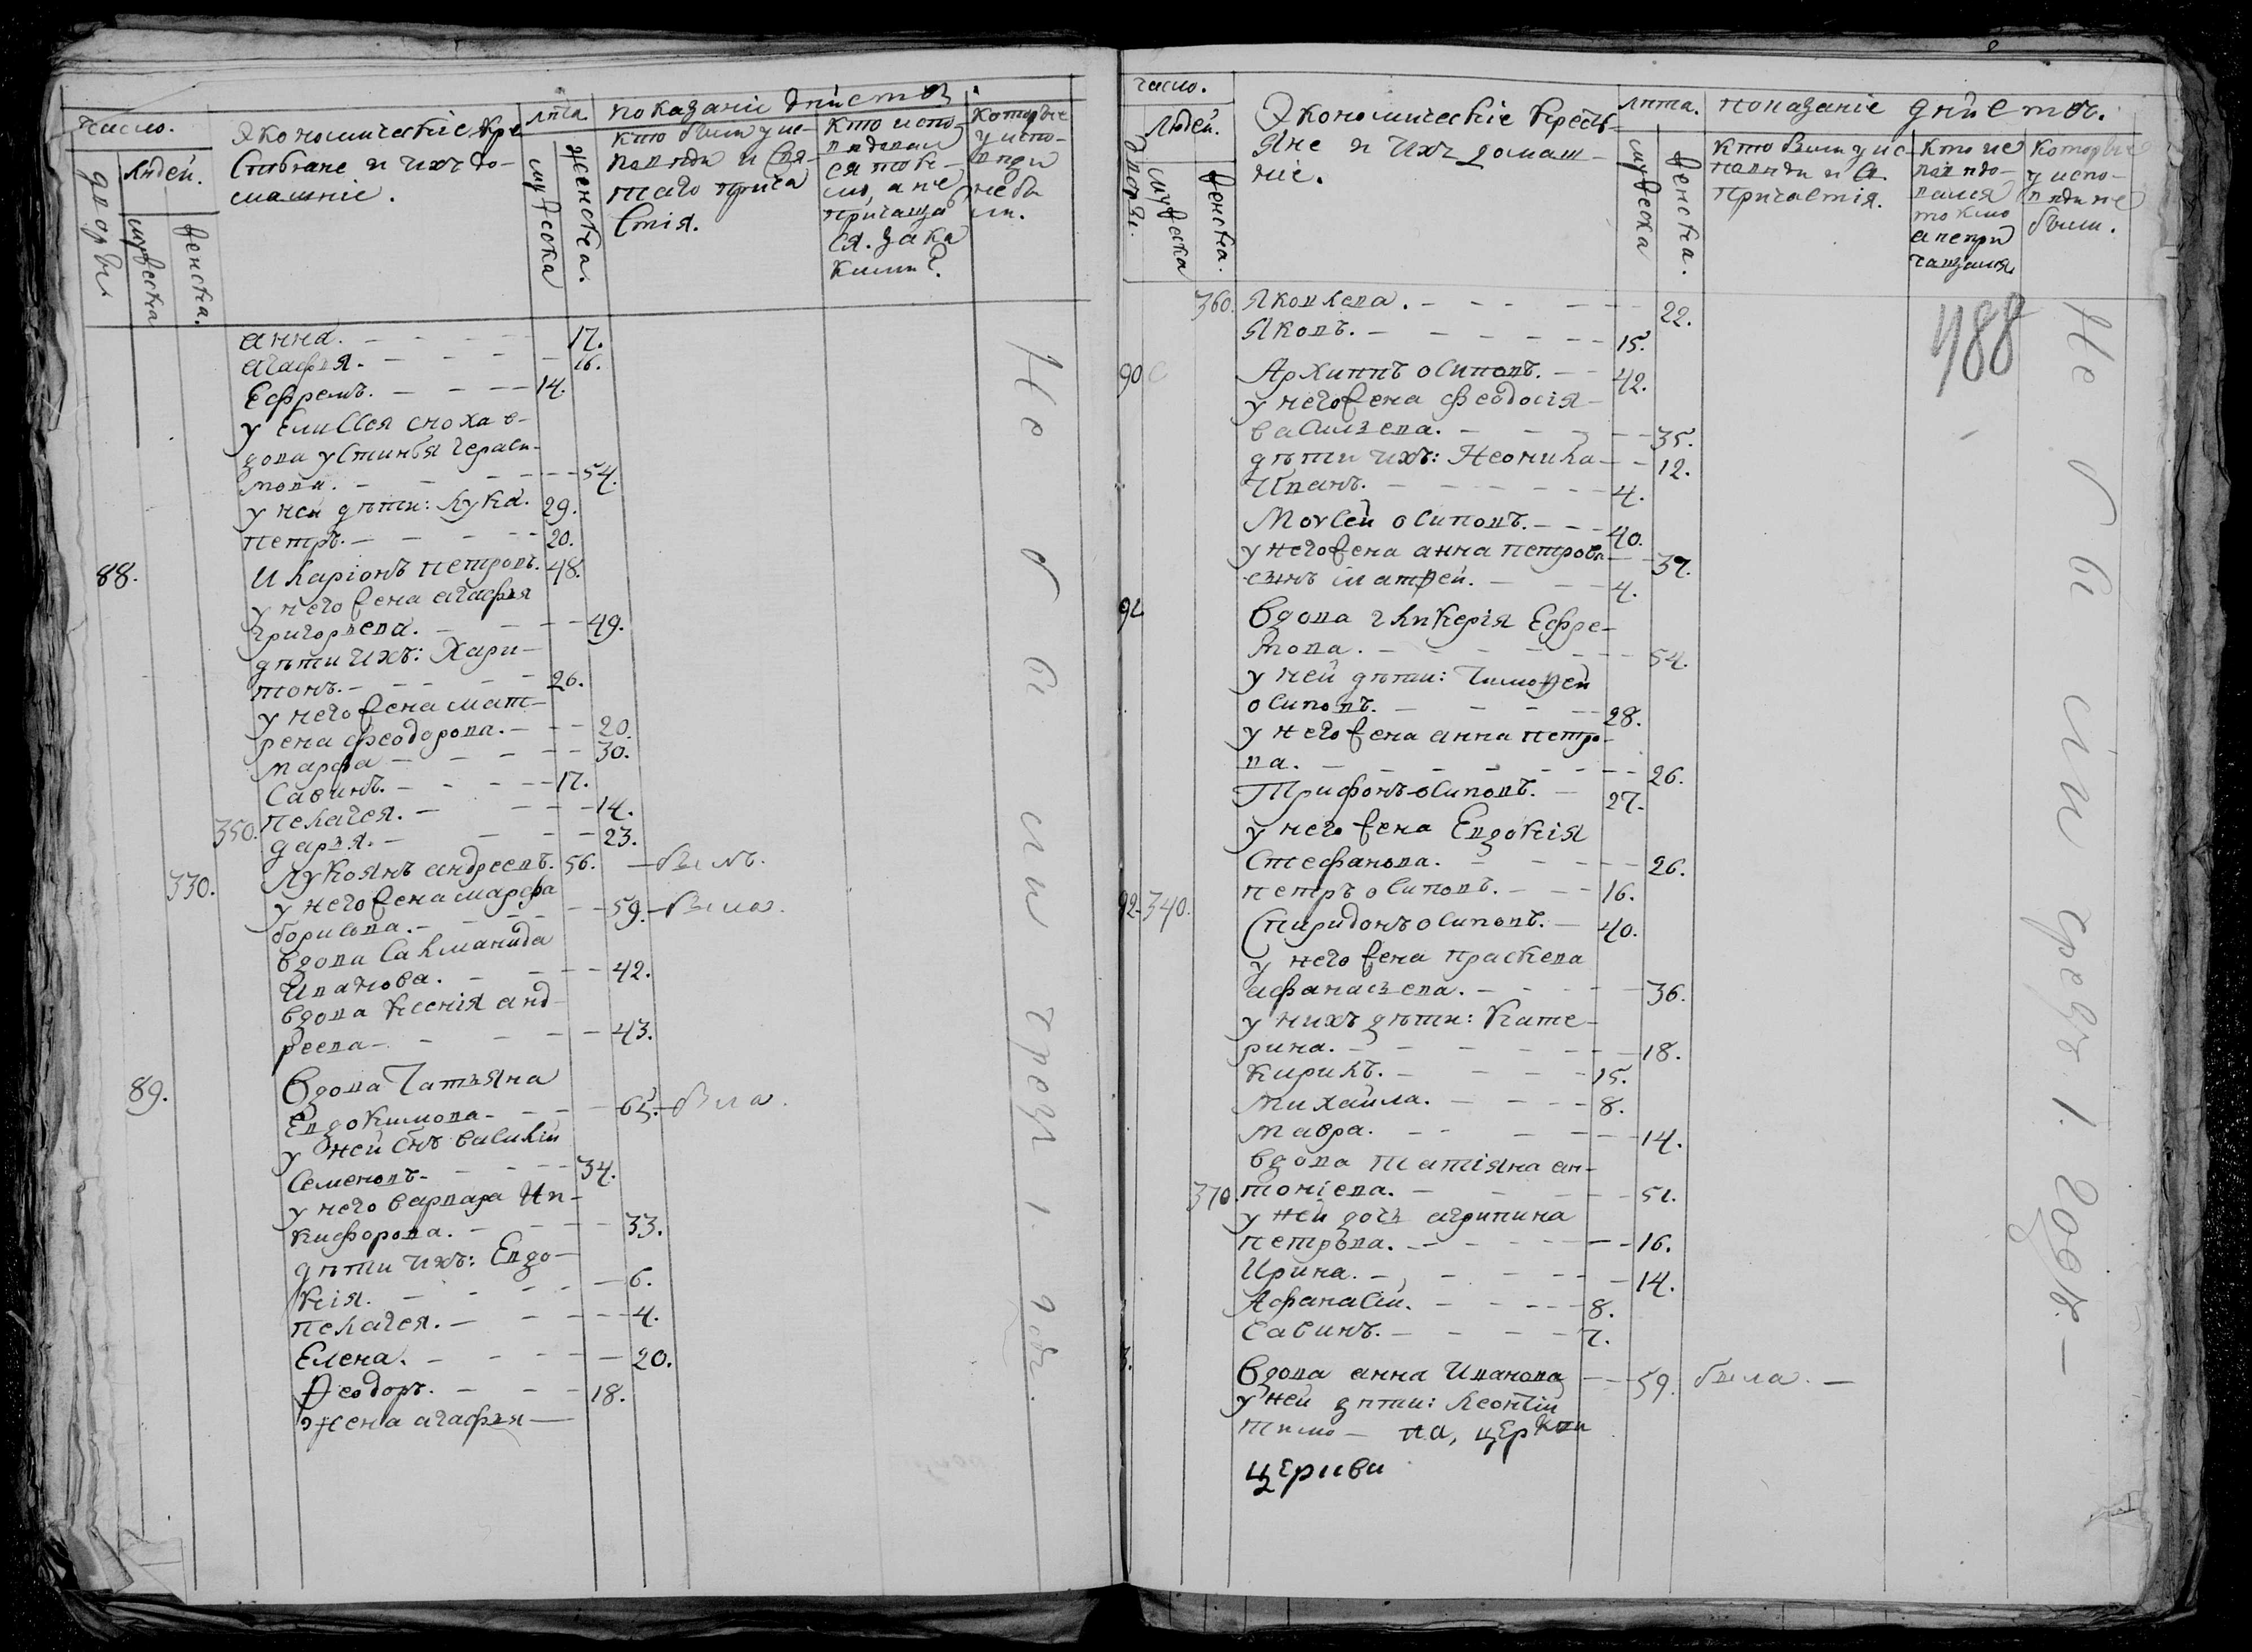 число.
Людей.
дворы
мужеска
женска.
Экономическіе кре
стьяне и ихъ до-
машніе.
лѣта
мужеска
женска.
показаніе дѣйствъ
кто были у ис-
повѣди и свя-
таго прича
стія.
кто испо-
вѣдали
ся ток-
мо, а не
причаща
ся. за ка
кими
которые
у испо-
вѣди
не бы
ли.
анна. 17.
агафья. 16.
Ефремъ. 14.
у Елисея сноха в-
дова устинья гераси-
мова. 54.
у неи дѣти: лука. 29.
петръ. 20.
88. Иларіонъ петровъ. 48.
у него жена агафья
григорьева. 49.
дѣти ихъ: Хари-
тонъ. 26.
у него жена мат-
рена феодорова. 20.
марфа 30.
Савинъ. 17.
350. пелагея. 14.
дарья. 23.
330. Лукоянъ андреевъ. 56. былъ.
у него жена марфа
борисова. 59. была.
вдова Саламанида
Иванова. 42.
вдова ксенія анд
реева 43.
89. вдова Татьяна
Евдокимова 65. была.
у ней снъ василій
Семеновъ 34.
у него варвара Ни-
кифорова. 33.
дѣти ихъ: Евдо-
кія. 6.
пелагея. 4.
Елена. 20.
Ѳеодоръ. 18.
жена агафья
Не бы ли чрезъ 1. годъ.
число.
Людей.
дворы.
мужеска
женска.
Экономическіе кресть-
яне и ихъ домаш-
ніе.
лѣта.
мужеска
женска.
показаніе дѣйствъ.
кто были у ис-
повѣди и с.
причастія.
кто ис
повѣдо-
вался
токмо
а непри
чащался
которые
у испо-
вѣди не
были.
488
360. Яковлева. 22.
Яковъ. 15.
90 Архиппъ осиповъ. 42.
у него жена феодосія
васильева. 35.
дѣти ихъ: Неонила 12.
Иванъ. 4.
Моѵсей осиповъ. 40.
у него жена анна петрова 37.
сынъ матѳей. 4.
91 вдова гликерія Ефре-
мова. 54.
у ней дѣти: Тимоѳей
осиповъ. 28.
у него жена анна петро-
ва. 26.
Трифонъ осиповъ. 27.
у него жена Евдокія
Стефанова. 26.
петръ осиповъ. 16.
92. 340. Спиридонъ осиповъ. 40.
у него жена праскева
афанасьева. 36.
у нихъ дѣти: Кате-
рина. 18.
Кирилъ. 15.
михайла. 8.
мавра. 14.
вдова татіяна ан-
370. тоніева. 51.
у ней дочь агрипина
петрова. 16.
Ирина. 14.
Афанасій. 8.
Савинъ. 7.
вдова анна Иванова 59. была.
у ней дѣти: леонтій
на, церкви
церкви
Не бы ли чрезъ 1. годъ.